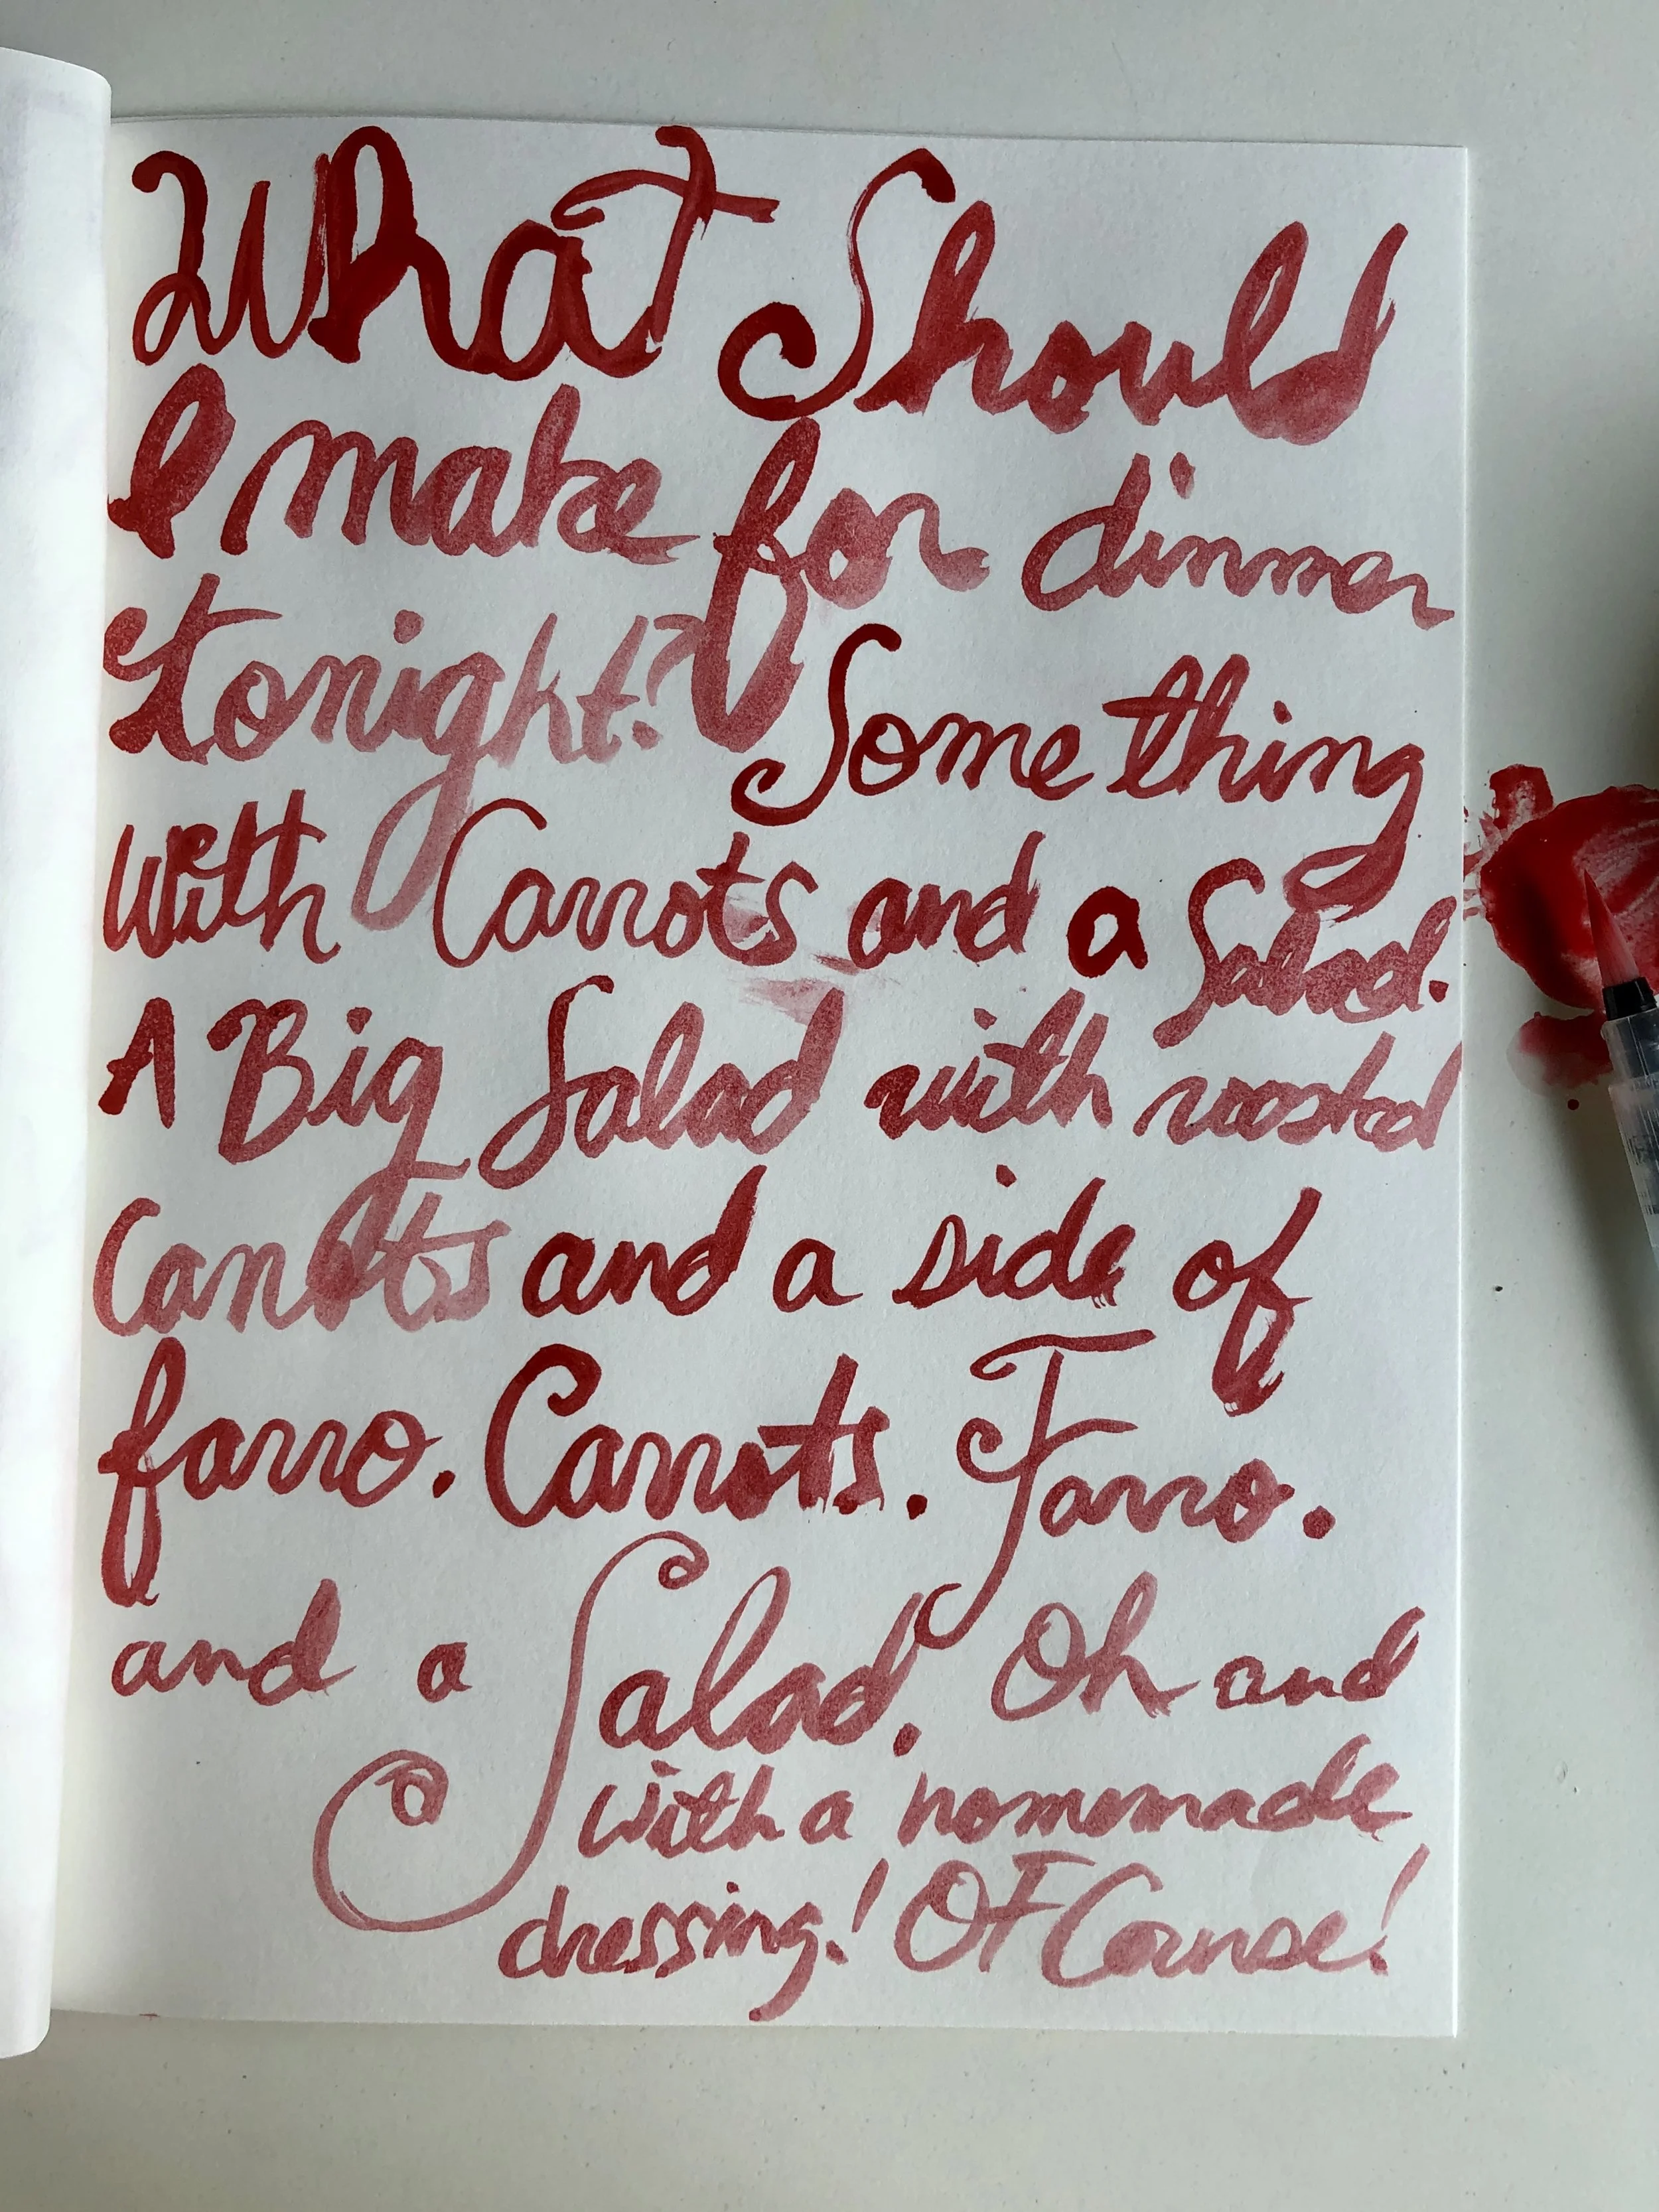 What Should
I make for dinner
tonight? Something
with Carrots and a Salad.
A Big Salad with roasted
Carrots and a side of
farro. Carrots. Farro.
and a Salad. Oh and
with a homemade
dressing! OF Course!